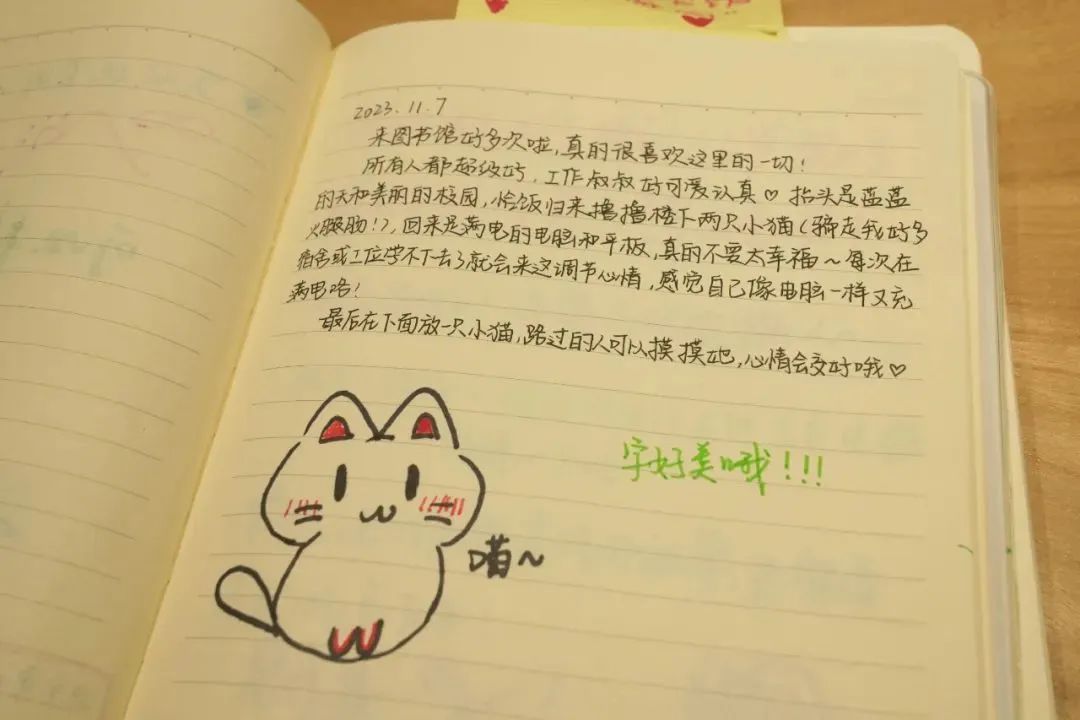 2023.11.7
来图书馆好多次啦，真的很喜欢这里的一切！
所有人都超级好，工作叔叔好可爱认真♡ 抬头是蓝蓝
的天和美丽的校园，恰饭归来撸撸楼下两只小猫(骗走我好多
火腿肠！)，回来是满电的电脑和平板，真的不要太幸福～每次在
宿舍或工位学不下去了就会来这调节心情，感觉自己像电脑一样又充
满电咯！
最后在下面放一只小猫，路过的人可以摸摸她，心情会变好哦♡
字好美哦！!!!
喵～